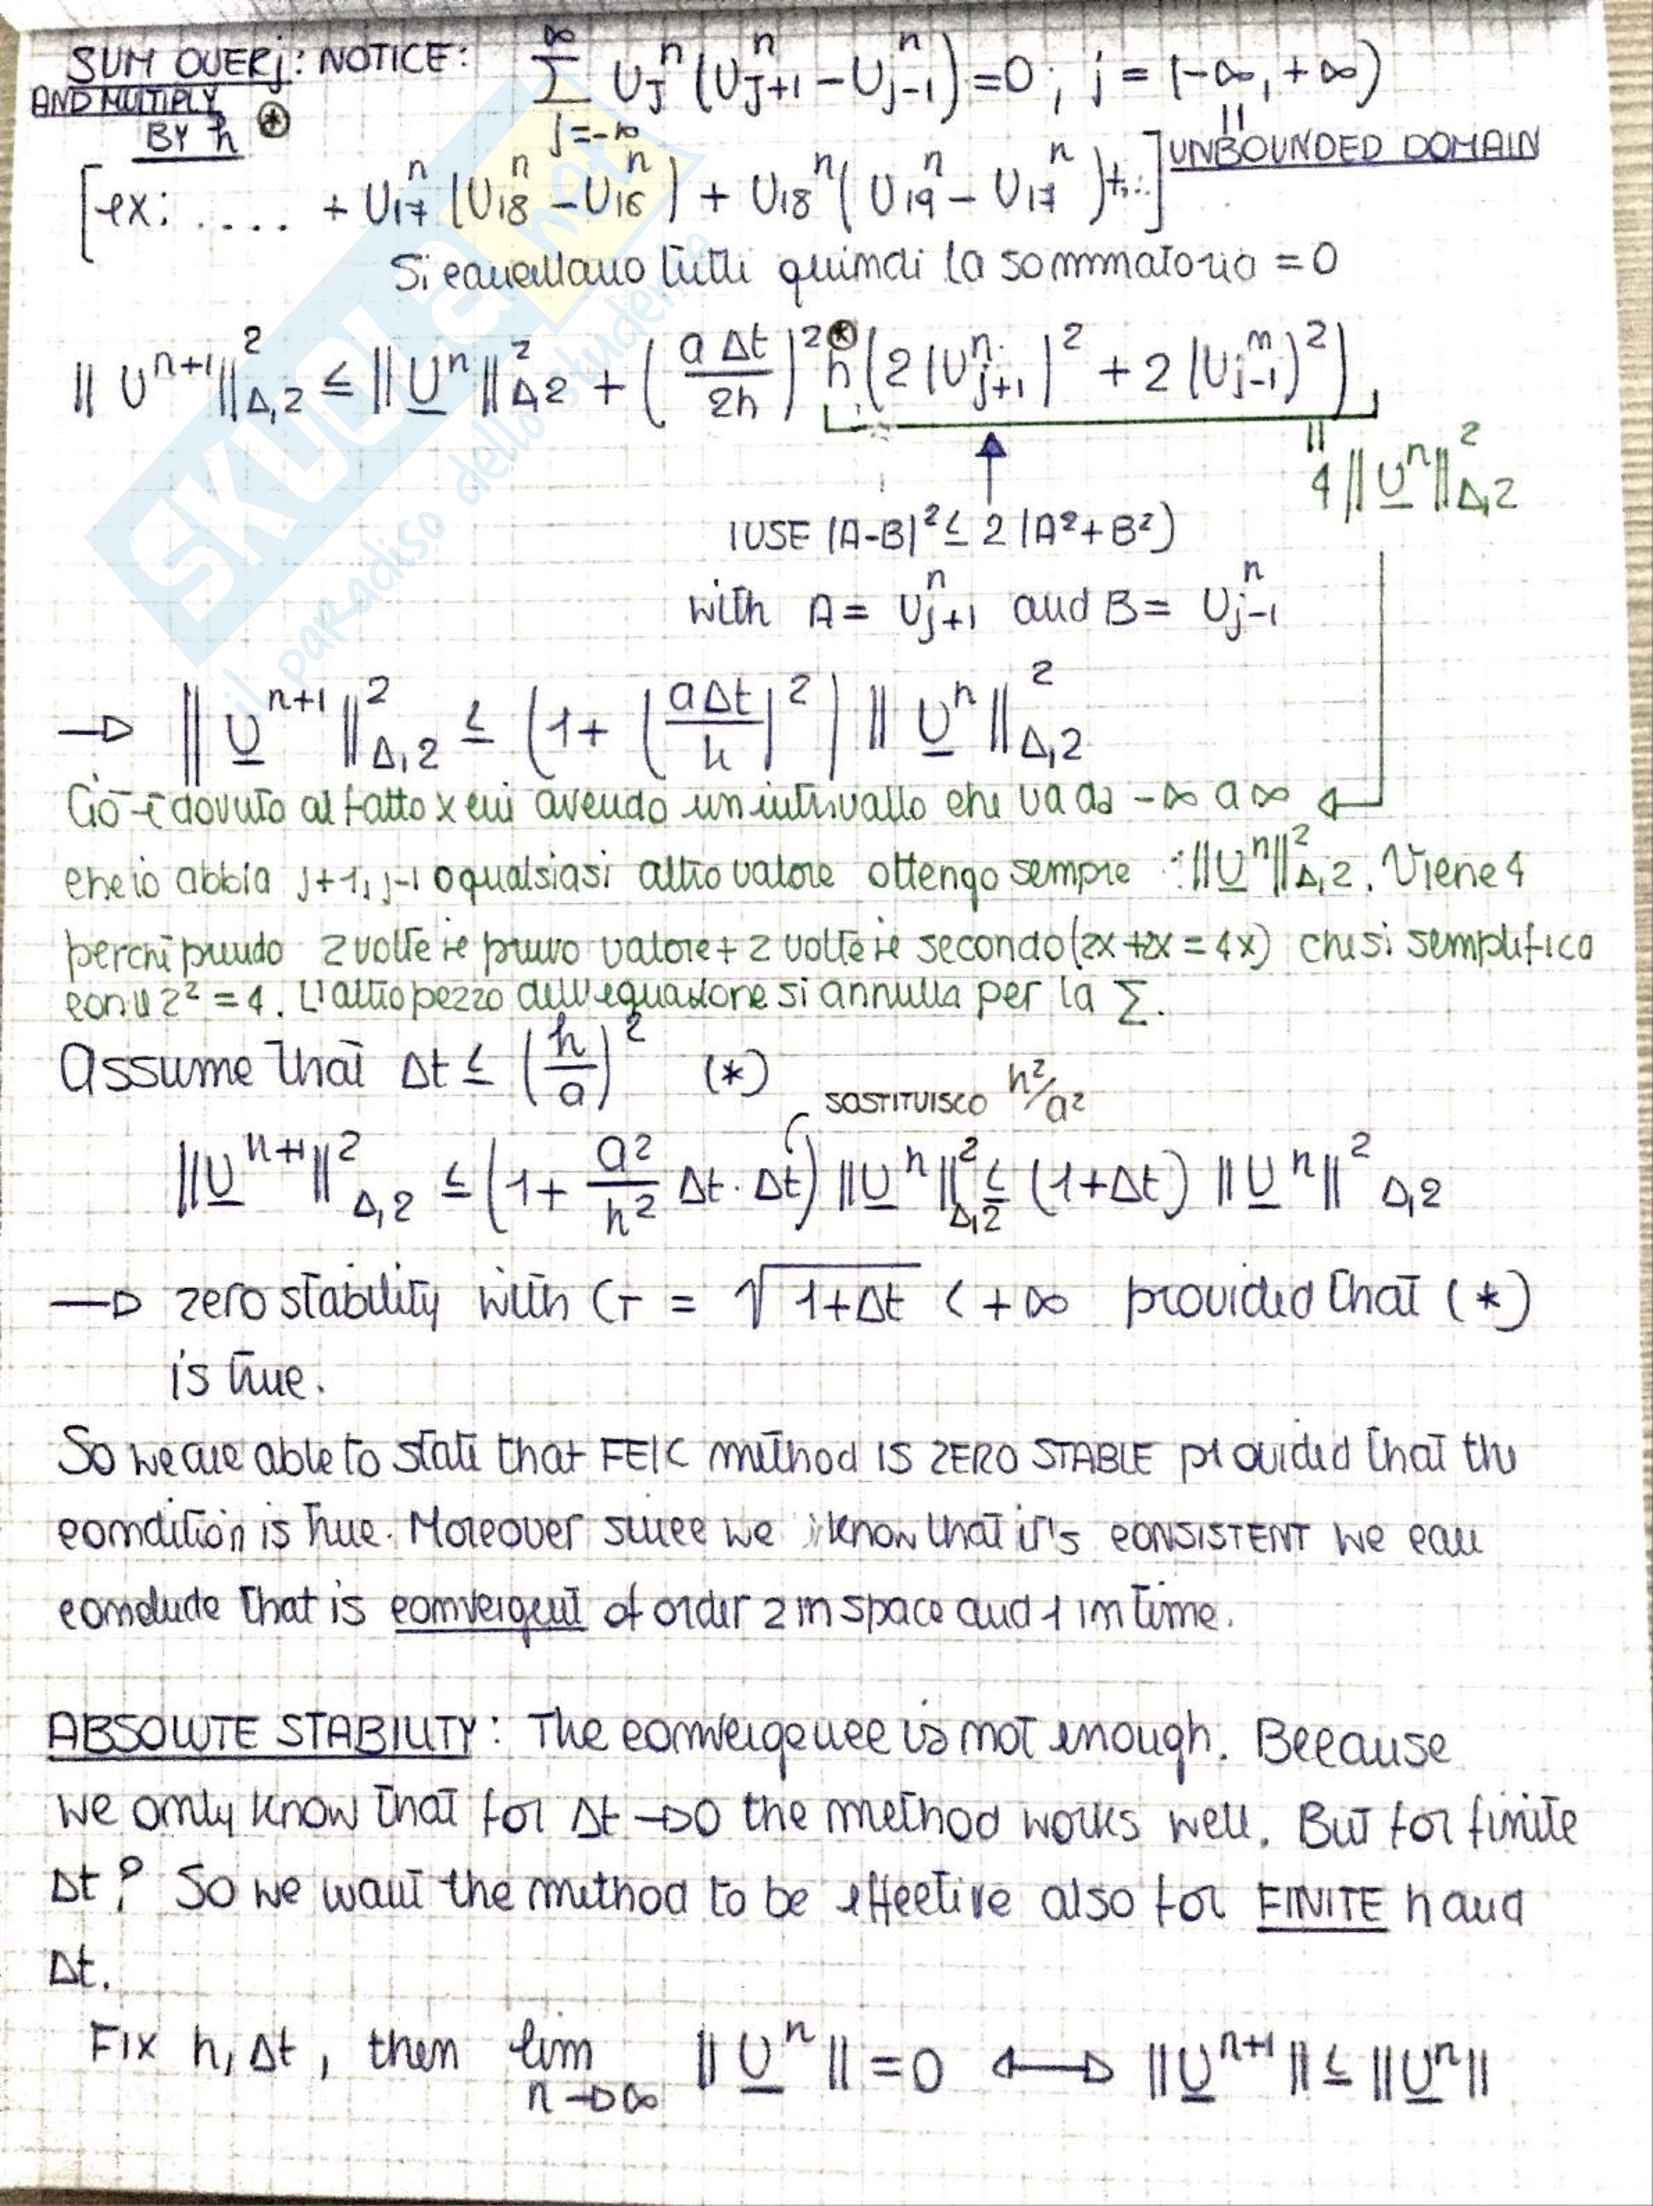 SUM OVER j: NOTICE: ∑_{j=-∞}^{∞} U_j^n (U_{j+1}^n - U_{j-1}^n) = 0 ; j = (-∞, +∞)
AND MULTIPLY
BY h ⊛
UNBOUNDED DOMAIN
[ex: .... + U_{17}^n (U_{18}^n - U_{16}^n) + U_{18}^n (U_{19}^n - U_{17}^n)+...]
Si cancellano tutti quindi la sommmatoria = 0
|| U^{n+1} ||²_{Δ,2} ≤ || U^n ||²_{Δ,2} + (aΔt/2h)² ⊛ h (2 (U_{j+1}^n)² + 2 (U_{j-1}^n)²)
4 || U^n ||²_{Δ,2}
I USE (A-B)² ≤ 2 (A²+B²)
with A = U_{j+1}^n and B = U_{j-1}^n
→ || U^{n+1} ||²_{Δ,2} ≤ (1 + (aΔt/h)²) || U^n ||²_{Δ,2}
Ciò è dovuto al fatto x cui avendo un intervallo che va da -∞ a ∞
che io abbia j+1, j-1 o qualsiasi altro valore ottengo sempre : || U^n ||²_{Δ,2}. Viene 4
perchè prendo 2 volte il primo valore + 2 volte il secondo (2x+2x = 4x) che si semplifica
con il 2² = 4. L'altro pezzo dell'equazione si annulla per la ∑.
Assume that Δt ≤ (h/a)² (*)
SOSTITUISCO h²/a²
|| U^{n+1} ||²_{Δ,2} ≤ (1 + a²/h² Δt · Δt) || U^n ||²_{Δ,2} ≤ (1+Δt) || U^n ||²_{Δ,2}
→ zero stability with C_T = √(1+Δt) < +∞ provided that (*)
is true.
So we are able to state that FE/C method IS ZERO STABLE provided that the
condition is true. Moreover since we know that it's CONSISTENT we can
conclude that is convergent of order 2 in space and 1 in time.
ABSOLUTE STABILITY: The convergence is not enough. Because
we only know that for Δt → 0 the method works well. But for finite
Δt? So we want the method to be effective also for FINITE h and
Δt.
Fix h, Δt, then lim_{n→∞} || U^n || = 0 ↔ || U^{n+1} || ≤ || U^n ||
SKUOLA.net
il paradiso dello studente